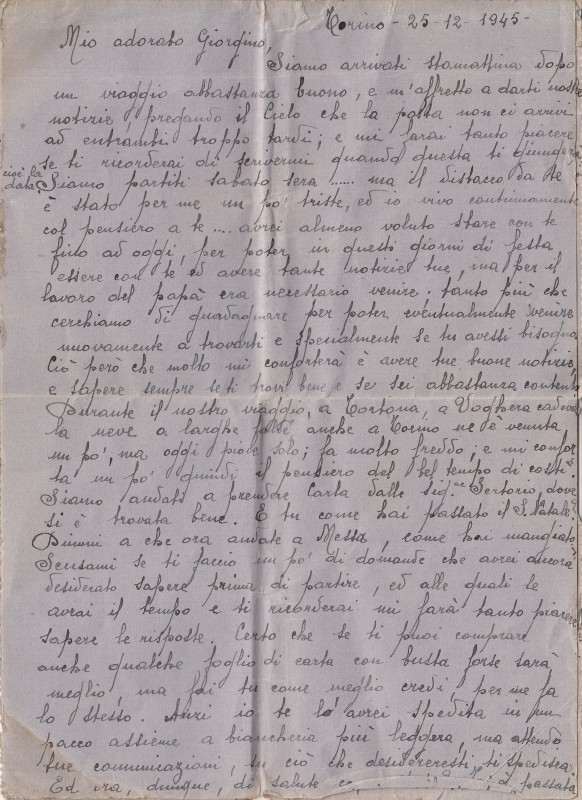 Torino - 25-12-1945-
Mio adorato Giorgino,
Siamo arrivati stamattina dopo
un viaggio abbastanza buono, e m'affretto a darti nostre
notizie, pregando il Cielo che la posta non ci arrivi
ad entrambi troppo tardi; e mi farai tanto piacere
se ti ricorderai di scrivermi quando questa ti giungerà
cioè la data
Siamo partiti sabato sera ...... ma il distacco da te
è stato per me un po' triste, ed io vivo continuamente
col pensiero a te .... avrei almeno voluto stare con te
fino ad oggi, per poter in questi giorni di festa
essere con te ed avere tante notizie tue, ma per il
lavoro del papà era necessario venire. tanto più che
cerchiamo di guadagnare per poter eventualmente venire
nuovamente a trovarti e specialmente se tu avessi bisogno
Ciò però che molto mi conforterà è avere tue buone notizie,
e sapere sempre se ti trovi bene e se sei abbastanza contento
Durante il nostro viaggio, a Tortona, a Voghera cadeva
la neve a larghe falde anche a Torino ne è venuta
un po', ma oggi piove solo; fa molto freddo; e mi confor
ta un po' quindi il pensiero del bel tempo di costì.
Siamo andati a prendere Carla dalle sig.ne Sertorio, dove
si è trovata bene. E tu come hai passato il S. Natale?
Dimmi a che ora andate a Messa, come hai mangiato,
Scusami se ti faccio un po' di domande che avrei ancora
desiderato sapere prima di partire, ed alle quali se
avrai il tempo e ti ricorderai mi farà tanto piacere
sapere le risposte. Certo che se ti puoi comprare
anche qualche foglio di carta con busta forse sarà
meglio, ma fai tu come meglio credi, per me fa
lo stesso. Anzi io te lo avrei spedita in un
pacco assieme a biancheria più leggera, ma attendo
tue comunicazioni, su ciò che desidereresti ti spedisca
Ed ora, dunque, di salute passata